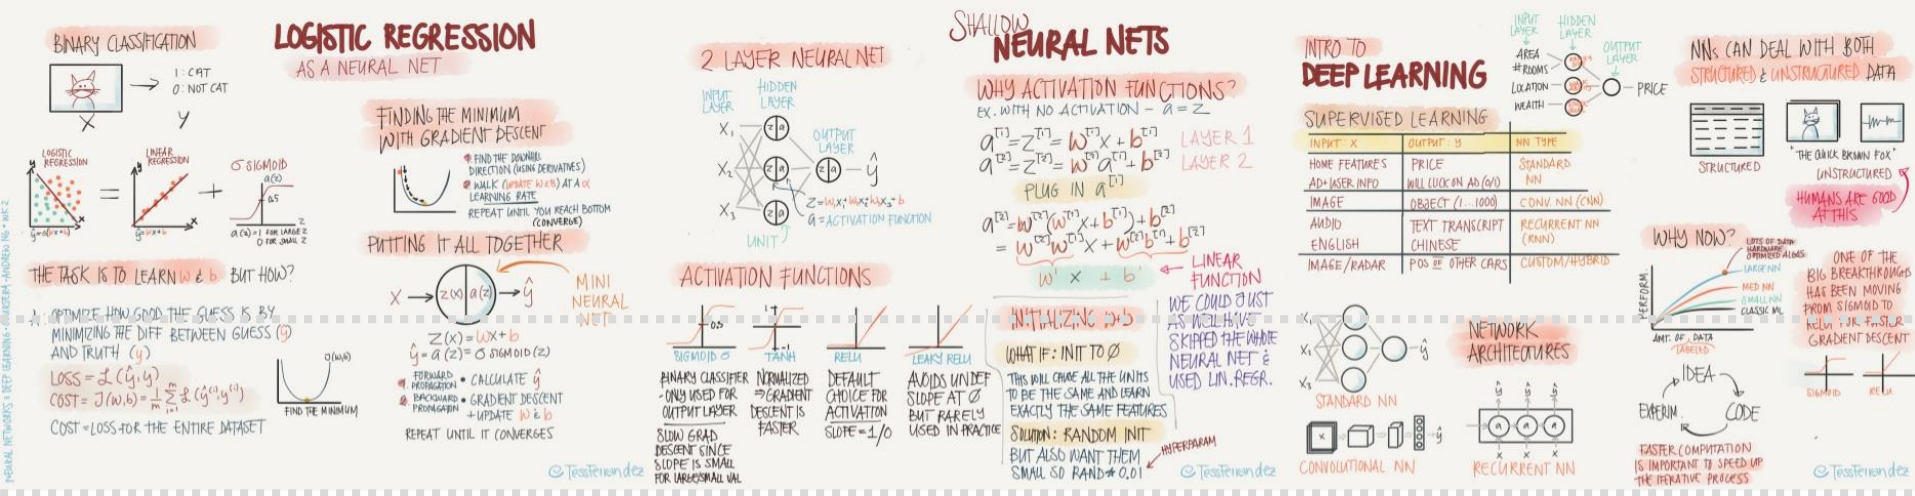 BINARY CLASSIFICATION
1: CAT
0: NOT CAT
X
y
LOGISTIC REGRESSION
AS A NEURAL NET
LOGISTIC REGRESSION
LINEAR REGRESSION
σ SIGMOID
a(z)
0.5
z
=
+
THE TASK IS TO LEARN w & b BUT HOW?
OPTIMIZE HOW GOOD THE GUESS IS BY
MINIMIZING THE DIFF BETWEEN GUESS (ŷ)
AND TRUTH (y)
LOSS = ℒ(ŷ, y)
COST = J(w,b) = 1/m Σ ℒ(ŷ⁽ⁱ⁾, y⁽ⁱ⁾)
COST = LOSS FOR THE ENTIRE DATASET
J(w,b)
FIND THE MINIMUM
FINDING THE MINIMUM
WITH GRADIENT DESCENT
FIND THE DOWNHILL
DIRECTION (USING DERIVATIVES)
WALK (UPDATE w & b) AT A α
LEARNING RATE
REPEAT UNTIL YOU REACH BOTTOM
(CONVERGE)
PUTTING IT ALL TOGETHER
X → z(x) a(z) → ŷ
MINI
NEURAL
NET
Z(X) = wX + b
ŷ = a(z) = σ SIGMOID(z)
FORWARD PROPAGATION • CALCULATE ŷ
BACKWARD PROPAGATION • GRADIENT DESCENT
+ UPDATE w & b
REPEAT UNTIL IT CONVERGES
@TessFerrandez
NEURAL NETWORKS & DEEP LEARNING • COURSERA • ANDREW NG • WK 2
SHALLOW
NEURAL NETS
2 LAYER NEURAL NET
INPUT LAYER
HIDDEN LAYER
OUTPUT LAYER
X₁
X₂
X₃
z a
ŷ
a = ACTIVATION FUNCTION
UNIT
ACTIVATION FUNCTIONS
SIGMOID σ
BINARY CLASSIFIER
- ONLY USED FOR
OUTPUT LAYER
SLOW GRAD
DESCENT SINCE
SLOPE IS SMALL
FOR LARGE/SMALL VAL
TANH
NORMALIZED
⇒ GRADIENT
DESCENT IS
FASTER
RELU
DEFAULT
CHOICE FOR
ACTIVATION
SLOPE = 1/0
LEAKY RELU
AVOIDS UNDEF
SLOPE AT 0
BUT RARELY
USED IN PRACTICE
WHY ACTIVATION FUNCTIONS?
EX. WITH NO ACTIVATION - a = z
a[1] = z[1] = w[1]X + b[1] LAYER 1
a[2] = z[2] = w[2]a[1] + b[2] LAYER 2
PLUG IN a[1]
a[2] = w[2](w[1]X + b[1]) + b[2]
= w[2]w[1]X + w[2]b[1] + b[2]
w' X + b'
LINEAR
FUNCTION
WE COULD JUST
AS WELL HAVE
SKIPPED THE WHOLE
NEURAL NET &
USED LIN. REGR.
INITIALIZING w+b
WHAT IF: INIT TO 0
THIS WILL CAUSE ALL THE UNITS
TO BE THE SAME AND LEARN
EXACTLY THE SAME FEATURES
SOLUTION: RANDOM INIT
BUT ALSO WANT THEM
SMALL SO RAND * 0.01
HYPERPARAM
@TessFerrandez
INTRO TO
DEEP LEARNING
INPUT LAYER
HIDDEN LAYER
OUTPUT LAYER
AREA
#ROOMS
LOCATION
WEALTH
PRICE
SUPERVISED LEARNING
INPUT: X OUTPUT: y NN TYPE
HOME FEATURES PRICE STANDARD
AD+USER INFO WILL CLICK ON AD (0/1) NN
IMAGE OBJECT (1...1000) CONV. NN (CNN)
AUDIO TEXT TRANSCRIPT RECURRENT NN
ENGLISH CHINESE (RNN)
IMAGE/RADAR POS OF OTHER CARS CUSTOM/HYBRID
X₁
X₂
X₃
ŷ
STANDARD NN
CONVOLUTIONAL NN
NETWORK
ARCHITECTURES
ŷ ŷ ŷ
a a a
X X X
RECURRENT NN
NNs CAN DEAL WITH BOTH
STRUCTURED & UNSTRUCTURED DATA
STRUCTURED
"THE QUICK BROWN FOX"
UNSTRUCTURED
HUMANS ARE GOOD
AT THIS
WHY NOW?
LOTS OF DATA
HARDWARE
OPTIMIZED ALGOS.
LARGE NN
MED NN
SMALL NN
CLASSIC ML
PERFORM.
AMT. OF DATA
LABELED
ONE OF THE
BIG BREAKTHROUGHS
HAS BEEN MOVING
FROM SIGMOID TO
RELU FOR FASTER
GRADIENT DESCENT
SIGMOID
RELU
IDEA
CODE
EXPERIM.
FASTER COMPUTATION
IS IMPORTANT TO SPEED UP
THE ITERATIVE PROCESS
@TessFerrandez